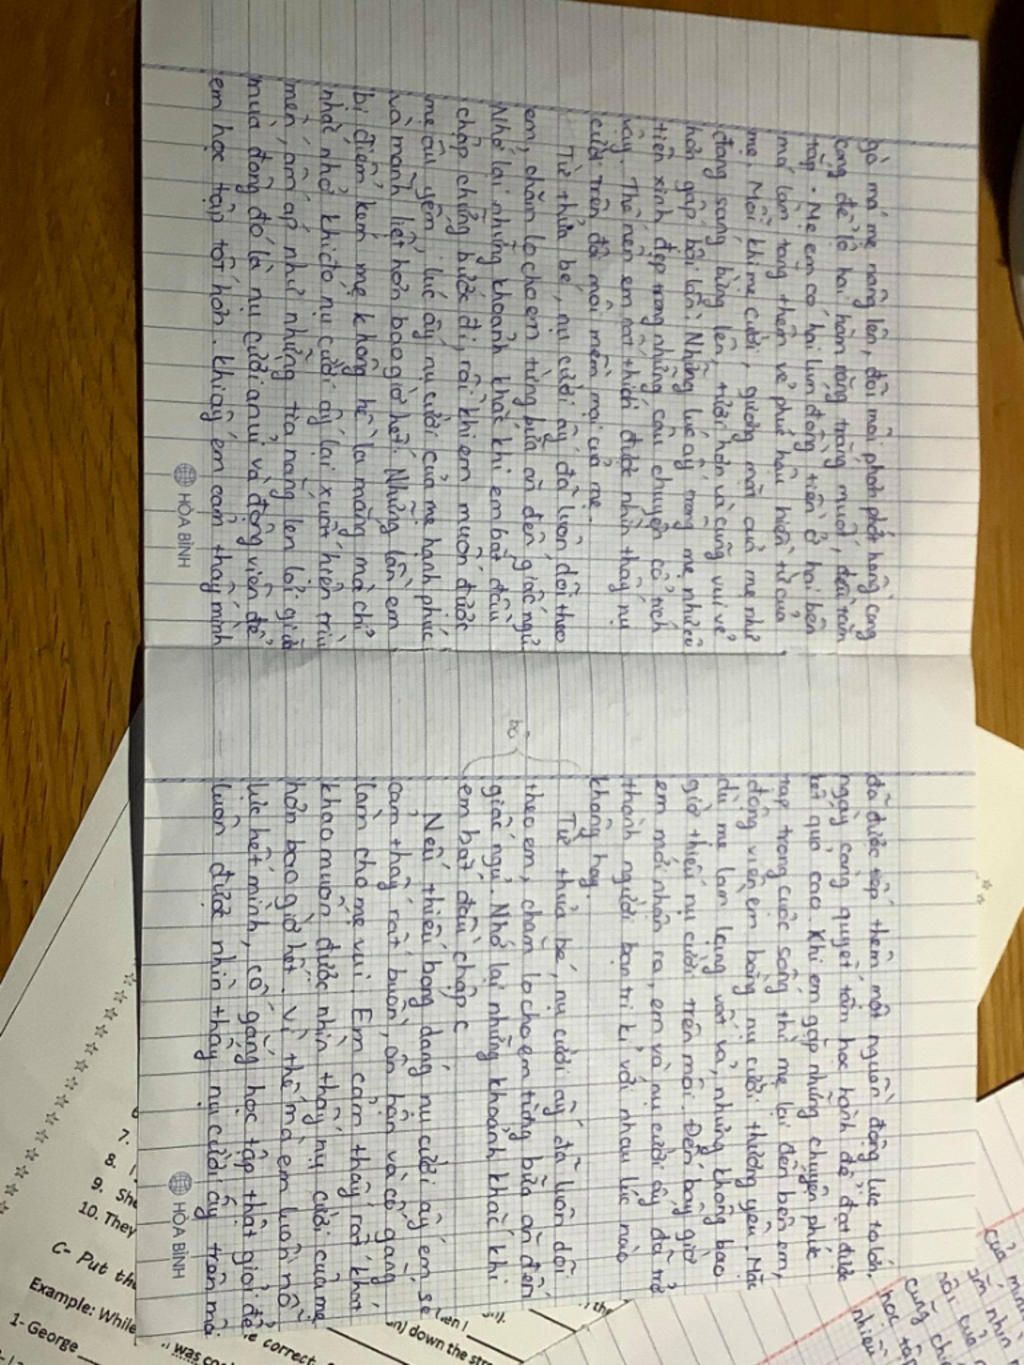 gò má mẹ nâng lên, đôi môi phơn phớt hồng cong
cong để lộ hai hàm răng trắng muốt, đều tăm
tắp. Mẹ em có hai lúm đồng tiền ở hai bên
má làm tăng thêm vẻ phúc hậu hiền từ của
mẹ. Mỗi khi mẹ cười, gương mặt của mẹ như
đang sáng bừng lên, tươi hơn và cũng vui vẻ
hơn gấp bội lần. Những lúc ấy trông mẹ như cô
tiên xinh đẹp trong những câu chuyện cổ tích
vậy. Thế nên em rất thích được nhìn thấy nụ
cười trên đôi môi mềm mại của mẹ.
Từ thửa bé, nụ cười ấy đã luôn dõi theo
em, chăm lo cho em từng bữa ăn đến giấc ngủ.
Nhớ lại những khoảnh khắc khi em bắt đầu
chập chững bước đi, rồi khi em muốn được
mẹ âu yếm. lúc ấy nụ cười của mẹ hạnh phúc
và mãnh liệt hơn bao giờ hết. Những lần em
bị điểm kém mẹ không hề la mắng mà chỉ
nhắc nhở khi đó nụ cười ấy lại xuất hiện trìu
mến, ấm áp như những tia nắng len lỏi giữa
mùa đông đó là nụ cười an ủi và động viên để
em học tập tốt hơn. khi ấy em cảm thấy mình
HÒA BÌNH
đã được tiếp thêm một nguồn động lực to lớn,
ngày càng quyết tâm học hành để đạt được
kết quả cao. Khi em gặp những chuyện phức
tạp trong cuộc sống thì mẹ lại đến bên em,
động viên em bằng nụ cười thương yêu. Mặc
dù mẹ làm lụng vất vả, nhưng không bao
giờ thiếu nụ cười trên môi. Đến bây giờ
em mới nhận ra, em và nụ cười ấy đã trở
thành người bạn tri kỉ với nhau lúc nào
không hay.
bỏ
Từ thửa bé, nụ cười ấy đã luôn dõi
theo em, chăm lo cho em từng bữa ăn đến
giấc ngủ. Nhớ lại những khoảnh khắc khi
em bắt đầu chập c
Nếu thiếu bóng dáng nụ cười ấy em sẽ
cảm thấy rất buồn, ân hận và cố gắng
làm cho mẹ vui. Em cảm thấy rất khát
khao muốn được nhìn thấy nụ cười của mẹ
hơn bao giờ hết. Vì thế mà em luôn nỗ
lực hết mình, cố gắng học tập thật giỏi để
luôn được nhìn thấy nụ cười ấy trên môi
HÒA BÌNH
7.
8.
9. She
10. They
C- Put the
e correct
Example: While
was
1- George
down the str
của mình
cũng
học tập
nhiều